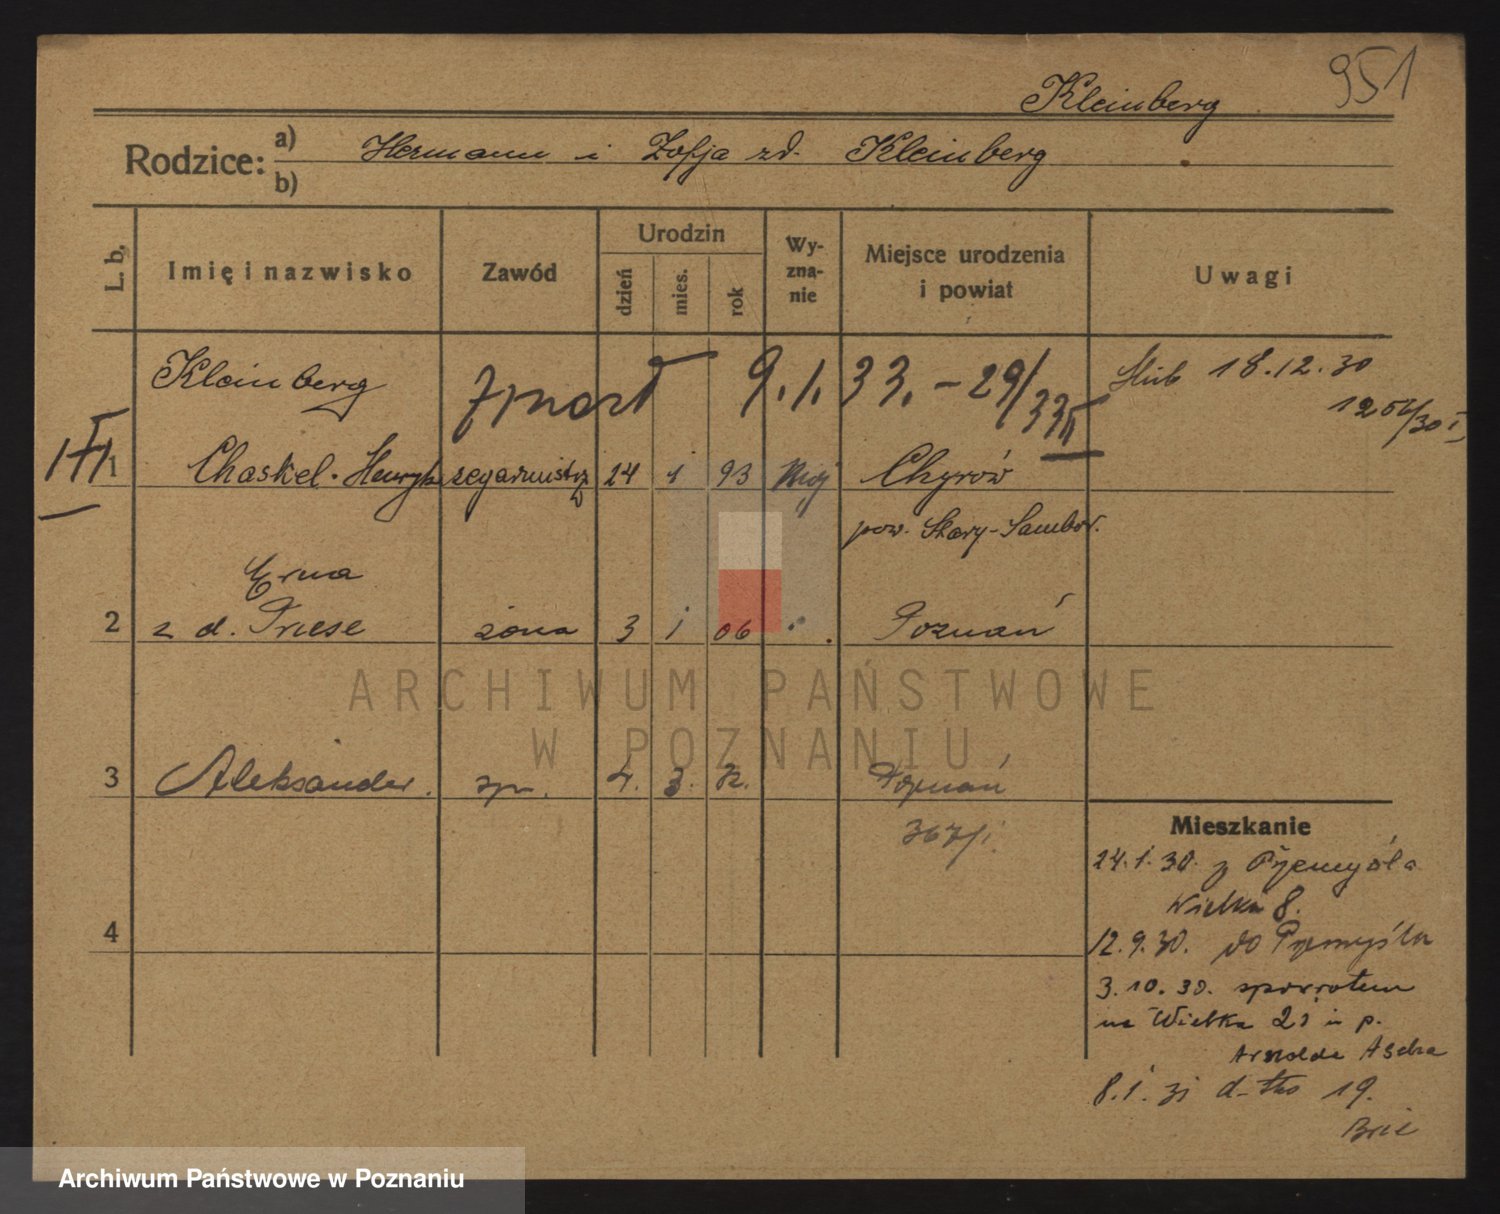 951
Kleinberg
Rodzice: a) Hermann i Zofja zd. Kleinberg
b)
L. b. Imię i nazwisko Zawód Urodzin dzień mies. rok Wy-zna-nie Miejsce urodzenia i powiat Uwagi
Kleinberg Zmarł 9.1.33. – 29/33 II Ślub 18.12.30
1252/30 I
III
1 Chaskel-Henryk zegarmistrz 24 1 93 Mojż Chyrów
pow. Stary-Sambor.
Erna
2 z d. Priese żona 3 1 06 Poznań
ARCHIWUM PAŃSTWOWE
W POZNANIU
3 Aleksander. syn. 4. 3. 32. Poznań
367/i
Mieszkanie
24.1.30. z Przemyśla
Wielka 8.
4
12.9.30. do Przemyśla
3.10.30. spowrotem
na Wielka 21 u p.
Arnolda Ascha
8.1.31 d-tto 19.
Archiwum Państwowe w Poznaniu